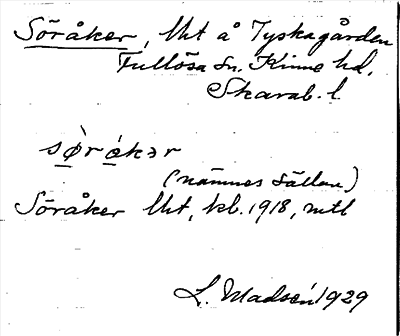 Söråker, lht å Tyskagården
Fullösa sn. Kinne hd.
Skarab. l.
sø̀rákər
(nämnes sällan)
Söråker lht, kb. 1918, mtl
L. Madsén 1929